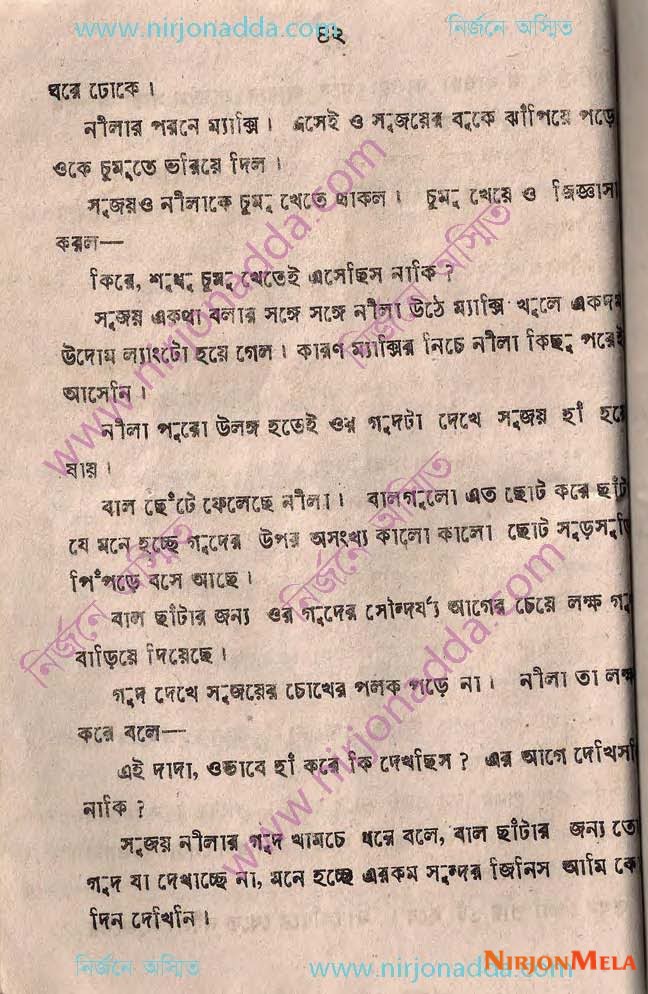 www.nirjonadda.com
৪২
নির্জনে অস্মিত
ঘরে ঢোকে।
নীলার পরনে ম্যাক্সি। এসেই ও সুজয়ের বুকে ঝাঁপিয়ে পড়ে
ওকে চুমুতে ভরিয়ে দিল।
সুজয়ও নীলাকে চুমু খেতে থাকল। চুমু খেয়ে ও জিজ্ঞাসা
করল—
কিরে, শুধু চুমু খেতেই এসেছিস নাকি?
সুজয় একথা বলার সঙ্গে সঙ্গে নীলা উঠে ম্যাক্সি খুলে একদম
উদোম ল্যাংটো হয়ে গেল। কারণ ম্যাক্সির নিচে নীলা কিছু পরেই
আসেনি।
নীলা পুরো উলঙ্গ হতেই ওর গুদটা দেখে সুজয় হাঁ হয়ে
যায়।
বাল ছেঁটে ফেলেছে নীলা। বালগুলো এত ছোট করে ছাঁটা
যে মনে হচ্ছে গুদের উপর অসংখ্য কালো কালো ছোট সুড়সুড়ি
পিঁপড়ে বসে আছে।
বাল ছাঁটার জন্য ওর গুদের সৌন্দর্য্য আগের চেয়ে লক্ষ গুণ
বাড়িয়ে দিয়েছে।
গুদ দেখে সুজয়ের চোখের পলক পড়ে না। নীলা তা লক্ষ্য
করে বলে—
এই দাদা, ওভাবে হাঁ করে কি দেখছিস? এর আগে দেখিসনি
নাকি?
সুজয় নীলার গুদ খামচে ধরে বলে, বাল ছাঁটার জন্য তো
গুদ যা দেখাচ্ছে না, মনে হচ্ছে এরকম সুন্দর জিনিস আমি কো
দিন দেখিনি।
নির্জনে অস্মিত
www.nirjonadda.com
NIRJONMELA